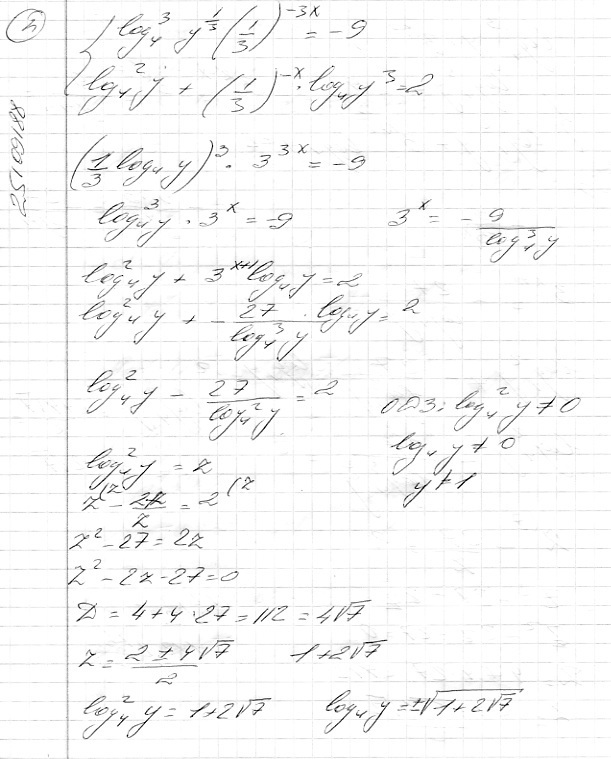 4
25109188
{ log₄³ y^(1/3) (1/3)^(-3x) = -9
log₄² y + (1/3)^(-x) · log₄ y³ = 2
(1/3 log₄ y)³ · 3^(3x) = -9
log₄³ y · 3^x = -9    3^x = - 9/(log₄³ y)
log₄² y + 3^(x+1) log₄ y = 2
log₄² y + - 27/(log₄³ y) · log₄ y = 2
log₄² y - 27/(log₄² y) = 2    ОДЗ: log₄² y ≠ 0
log₄ y ≠ 0
log₄² y = z    y ≠ 1
z - 27/z = 2
z² - 27 = 2z
z² - 2z - 27 = 0
D = 4 + 4 · 27 = 112 = 4√7
z = (2 ± 4√7)/2    1 + 2√7
log₄² y = 1 + 2√7    log₄ y = ±√(1 + 2√7)